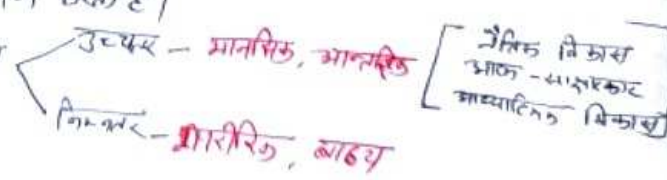 उच्चतर - मानसिक, आन्तरिक [ नैतिक विकास
आत्म - साक्षात्कार
आध्यात्मिक विकास ]
निम्नतर - शारीरिक, बाह्य